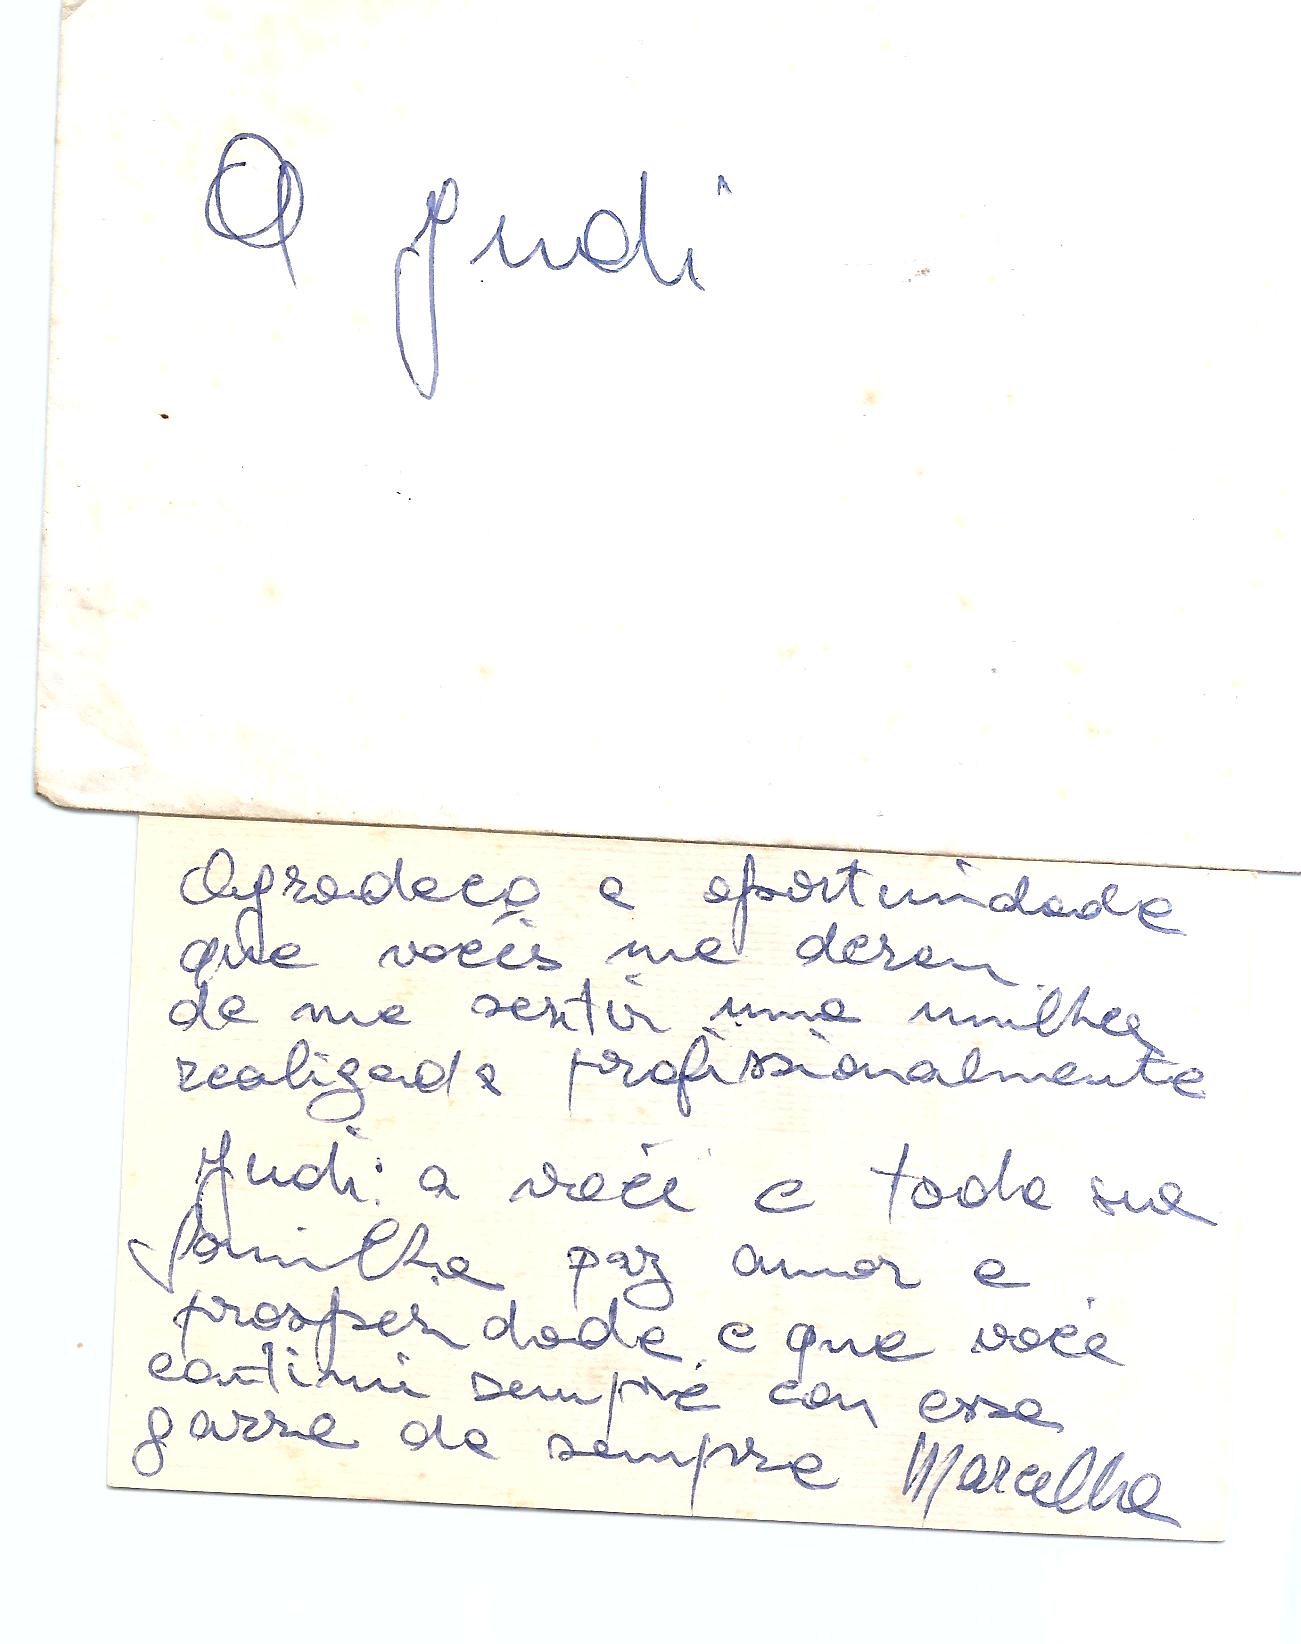 A Judi
Agradeço a oportunidade
que vocês me deram
de me sentir uma mulher
realizada profissionalmente
Judi: a você e toda sua
familha paz amor e
prosperidade e que você
continui sempre com essa
garra de sempre Marcelha